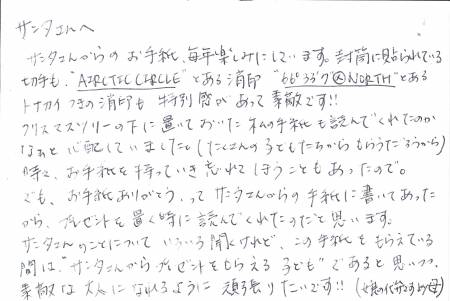 サンタさんへ
サンタさんからのお手紙、毎年楽しみにしています。封筒に貼られている
切手も、"ARCTIC CIRCLE"とある消印 "66°33'7 NORTH"とある
トナカイつきの消印も特別感があって素敵です!!
クリスマスツリーの下に置いておいた私の手紙も読んでくれたのか
なぁと心配していました (たくさんの子どもたちからもらうだろうから)
時々、お手紙を持っていき忘れてしまうこともあったので。
でも、お手紙ありがとう、ってサンタさんからの手紙に書いてあった
から、プレゼントを置く時に読んでくれたのだと思います。
サンタさんのことについていろいろ聞くけれど、この手紙をもらえている
間は、"サンタさんからプレゼントをもらえる子ども"であると思いつつ、
素敵な大人になれるように頑張りたいです!! (娘の代弁する母)